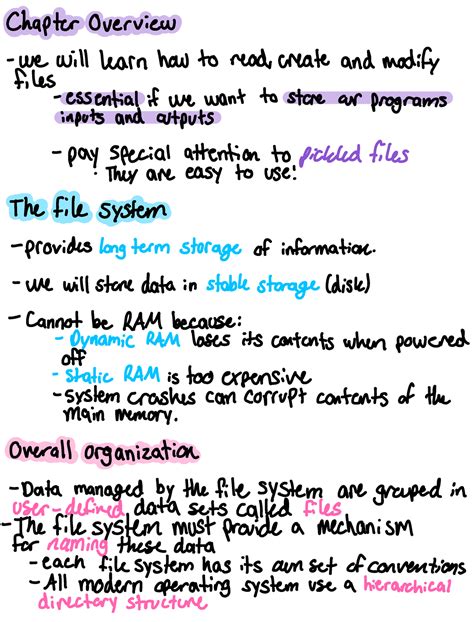 Chapter Overview
- we will learn how to read, create and modify
files
- essential if we want to store our programs
inputs and outputs
- pay special attention to pickled files
· They are easy to use!
The file system
- provides long term storage of information.
- we will store data in stable storage (disk)
- Cannot be RAM because:
- Dynamic RAM loses its contents when powered
off
- Static RAM is too expensive
- System crashes can corrupt contents of the
main memory.
Overall organization
- Data managed by the file system are grouped in
user-defined data sets called files
- The file system must provide a mechanism
for naming these data
- each file system has its own set of conventions
- All modern operating system use a hierarchical
directory structure